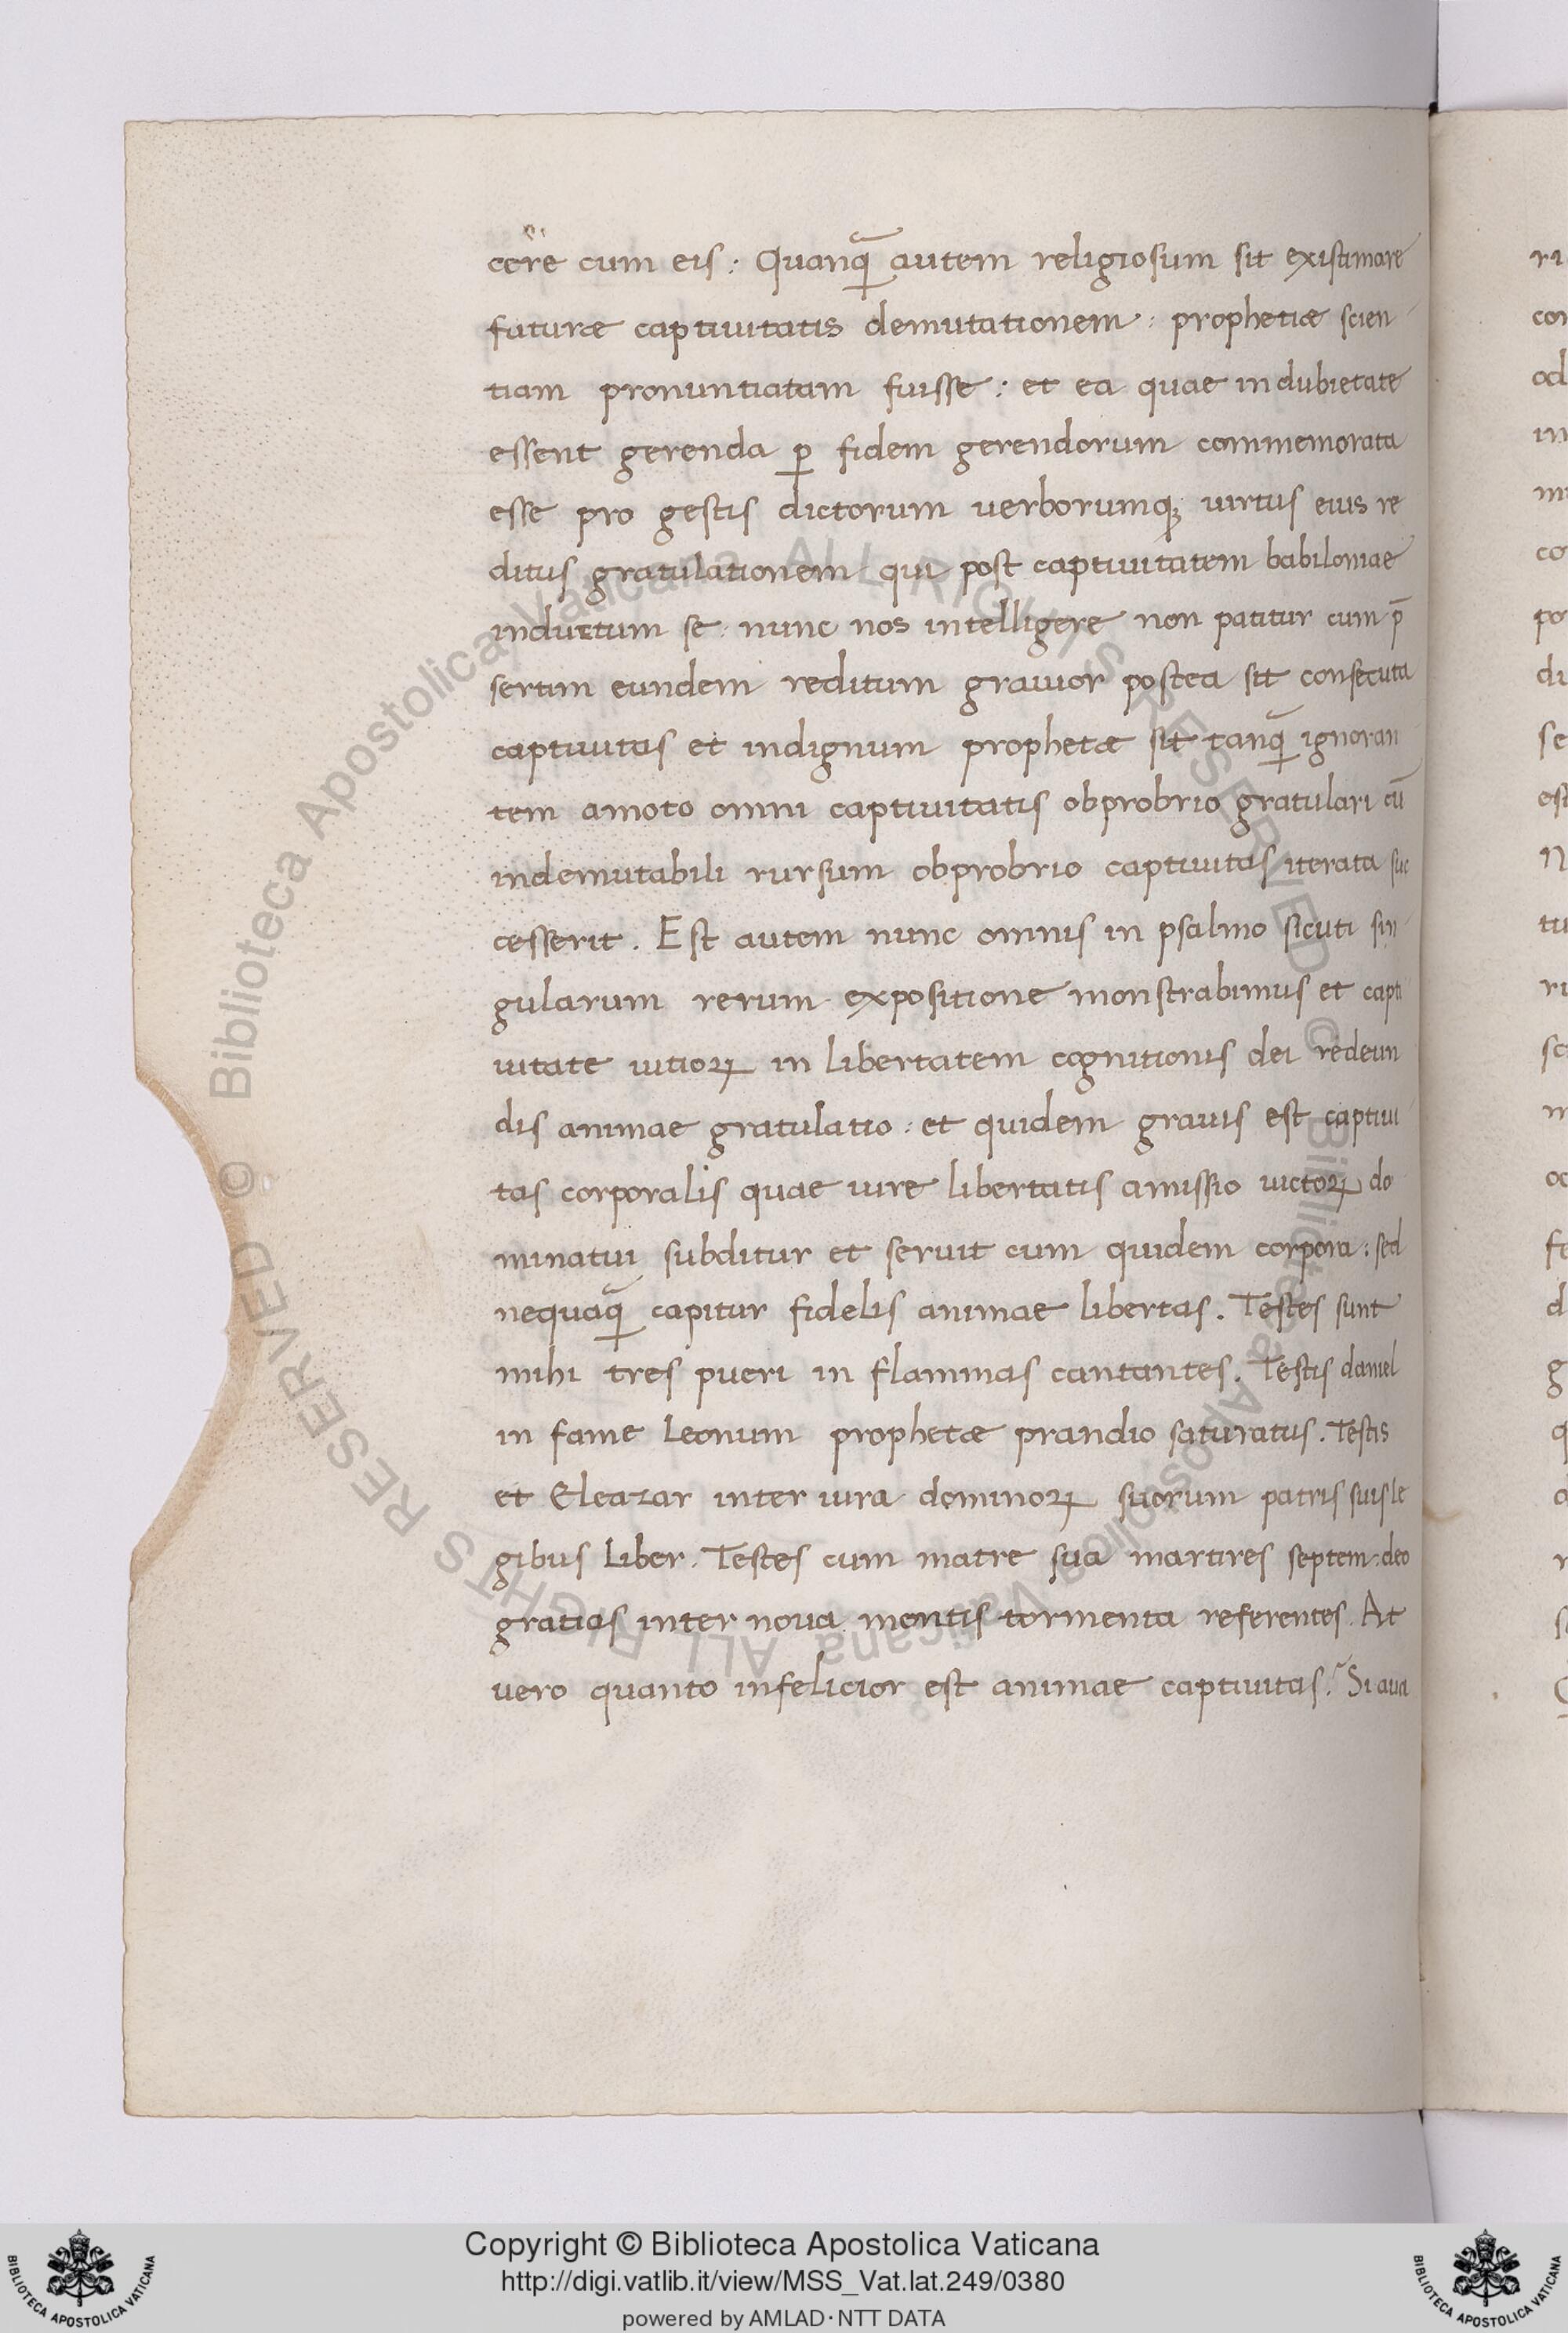 cere cum eis : Quanq̃ autem religiosum sit existimare
futuræ captiuitatis demutationem : prophetiæ scien
tiam pronuntiatam fuisse : et ea quae in dubietate
essent gerenda ꝑ fidem gerendorum commemorata
esse pro gestis dictorum uerborumq; uirtus eius re
ditus gratulationem qui post captiuitatem babiloniae
inductum se nunc nos intelligere non patitur cum p̄
sertim eundem reditum grauior postea sit consecuta
captiuitas et indignum prophetæ sit tanq̃ ignoran
tem amoto omni captiuitatis obprobrio gratulari cū
indemutabili rursum obprobrio captiuitas iterata suc
cesserit . Est autem nunc omnis in psalmo sicuti sin
gularum rerum expositione monstrabimus et capti
uitate uitioꝝ in libertatem cognitionis dei redeun
dis animae gratulatio : et quidem grauis est captiui
tas corporalis quae iure libertatis amissio uictoꝝ do
minatui subditur et seruit cum quidem corpora : sed
nequaq̃ capitur fidelis animae libertas . Testes sunt
mihi tres pueri in flammas cantantes . Testis daniel
in fame Leonum prophetæ prandio saturatus . Testis
et Eleazar inter iura dominoꝝ suorum patris suis le
gibus liber . Testes cum matre sua martires septem : deo
gratias inter noua mentis tormenta referentes . At
uero quanto infelicior est animae captiuitas . Si aua
© Biblioteca Apostolica Vaticana ALL RIGHTS RESERVED
© Biblioteca Apostolica Vaticana ALL RIGHTS RESERVED
Copyright © Biblioteca Apostolica Vaticana
http://digi.vatlib.it/view/MSS_Vat.lat.249/0380
powered by AMLAD·NTT DATA
BIBLIOTECA APOSTOLICA VATICANA
BIBLIOTECA APOSTOLICA VATICANA